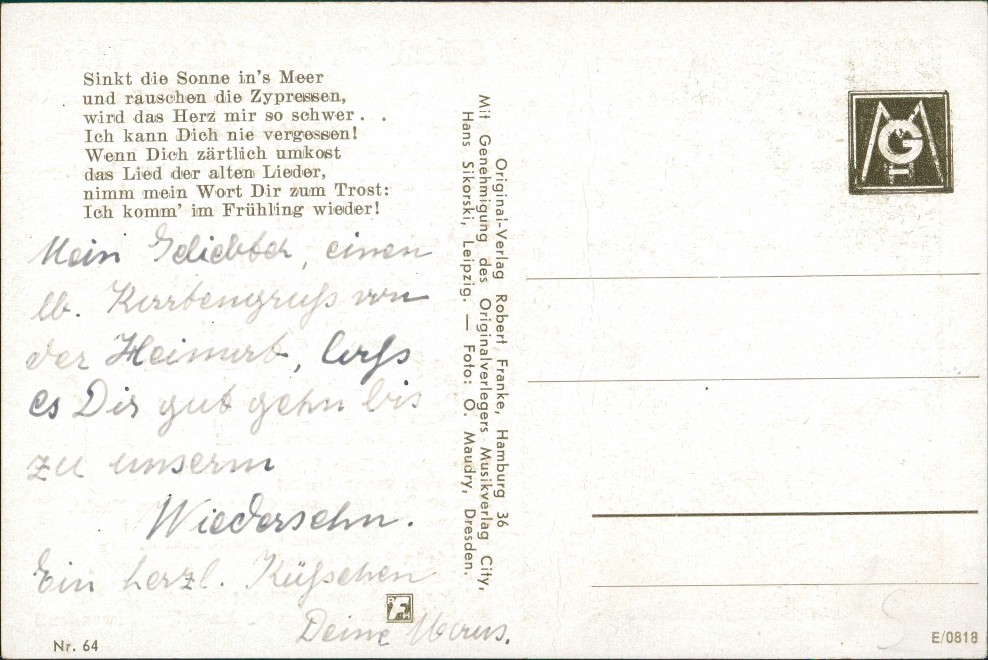 Sinkt die Sonne in's Meer
und rauschen die Zypressen,
wird das Herz mir so schwer . .
Ich kann Dich nie vergessen!
Wenn Dich zärtlich umkost
das Lied der alten Lieder,
nimm mein Wort Dir zum Trost:
Ich komm' im Frühling wieder!
Mein Geliebter, einen
lb. Kartengruß von
der Heimat, laß
es Dir gut gehn bis
zu unserm
Wiedersehn.
Ein herzl. Küßchen
Deine
Nr. 64
Original-Verlag Robert Franke, Hamburg 36
Mit Genehmigung des Originalverlegers Musikverlag City,
Hans Sikorski, Leipzig. — Foto: O. Maudry, Dresden.
E/0818